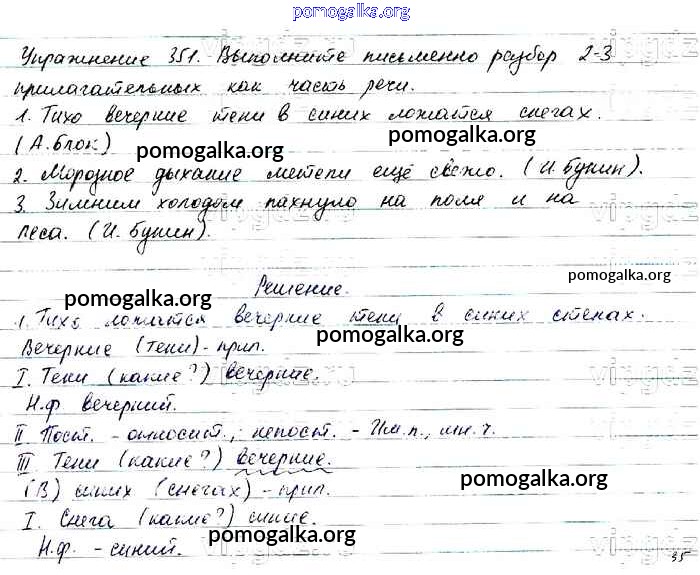 pomogalka.org
Упражнение 351. Выполните письменно разбор 2-3
прилагательных как часть речи.
1. Тихо вечерние тени в синих ложатся снегах.
(А. Блок)
pomogalka.org
pomogalka.org
2. Морозное дыхание метели ещё свежо. (И. Бунин).
3. Зимним холодом пахнуло на поля и на
леса. (И. Бунин).
pomogalka.org
Решение.
pomogalka.org
1. Тихо ложатся вечерние тени в синих стенах.
Вечерние (тени) - прил.
pomogalka.org
I. Тени (какие?) вечерние.
Н.ф вечерний.
II Пост. - относит.; непост. - Им.п., мн.ч.
III Тени (какие?) вечерние.
(В) синих (снегах) - прил.
pomogalka.org
I. Снега (какие?) синие.
Н.ф. - синий.
pomogalka.org
35